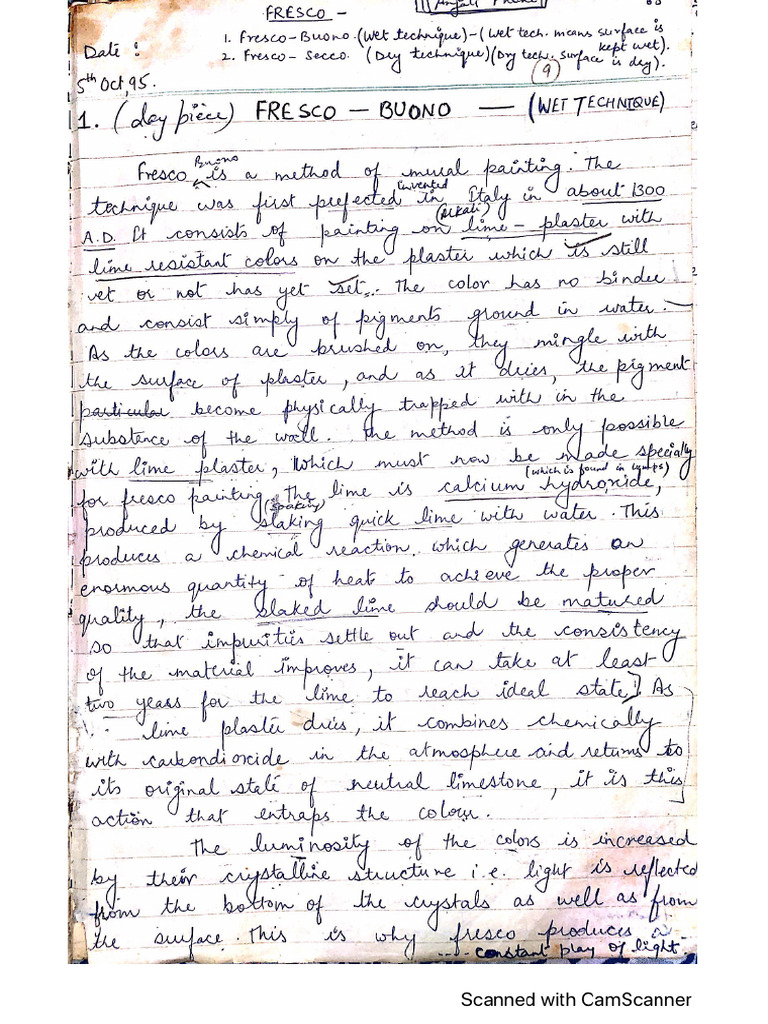 FRESCO -
1. Fresco-Buono (Wet technique)-(Wet tech. means surface is kept wet).
Date :
2. Fresco-Secco. (Dry technique)(Dry tech. surface is dry).
5th Oct, 95.
9
1. (day piece) FRESCO - BUONO - (WET TECHNIQUE)
Fresco Buono is a method of mural painting. The
technique was first prefected invented in Italy in about 1300
A.D. It consists of painting on (Alkali) lime-plaster with
lime resistant colors on the plaster which is still
wet or not has yet set. The color has no binder
and consist simply of pigments ground in water.
As the colors are brushed on, they mingle with
the surface of plaster, and as it dries, the pigment
particular become physically trapped with in the
substence of the wall. The method is only possible
with lime plaster, which must now be made specially
for fresco painting. The lime is calcium hydroxide, (which is found in lumps)
produced by slaking (soaking) quick lime with water. This
produces a chemical reaction which generates an
enormous quantity of heat to achieve the proper
quality, the slaked lime should be matured
so that impurities settle out and the consistency
of the material improves, it can take at least
two years for the lime to reach ideal state] As
lime plaster dries, it combines chemically
with carbondioxide in the atmosphere and returns to
its original state of neutral limestone, it is this
action that entraps the colour.
The luminosity of the colors is increased
by their crystalline structure i.e. light is reflected
from the bottom of the crystals as well as from
the surface. This is why fresco produces a
.... constant play of light
Scanned with CamScanner